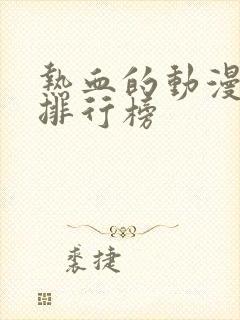 熱血的動漫
排行榜
裘捷